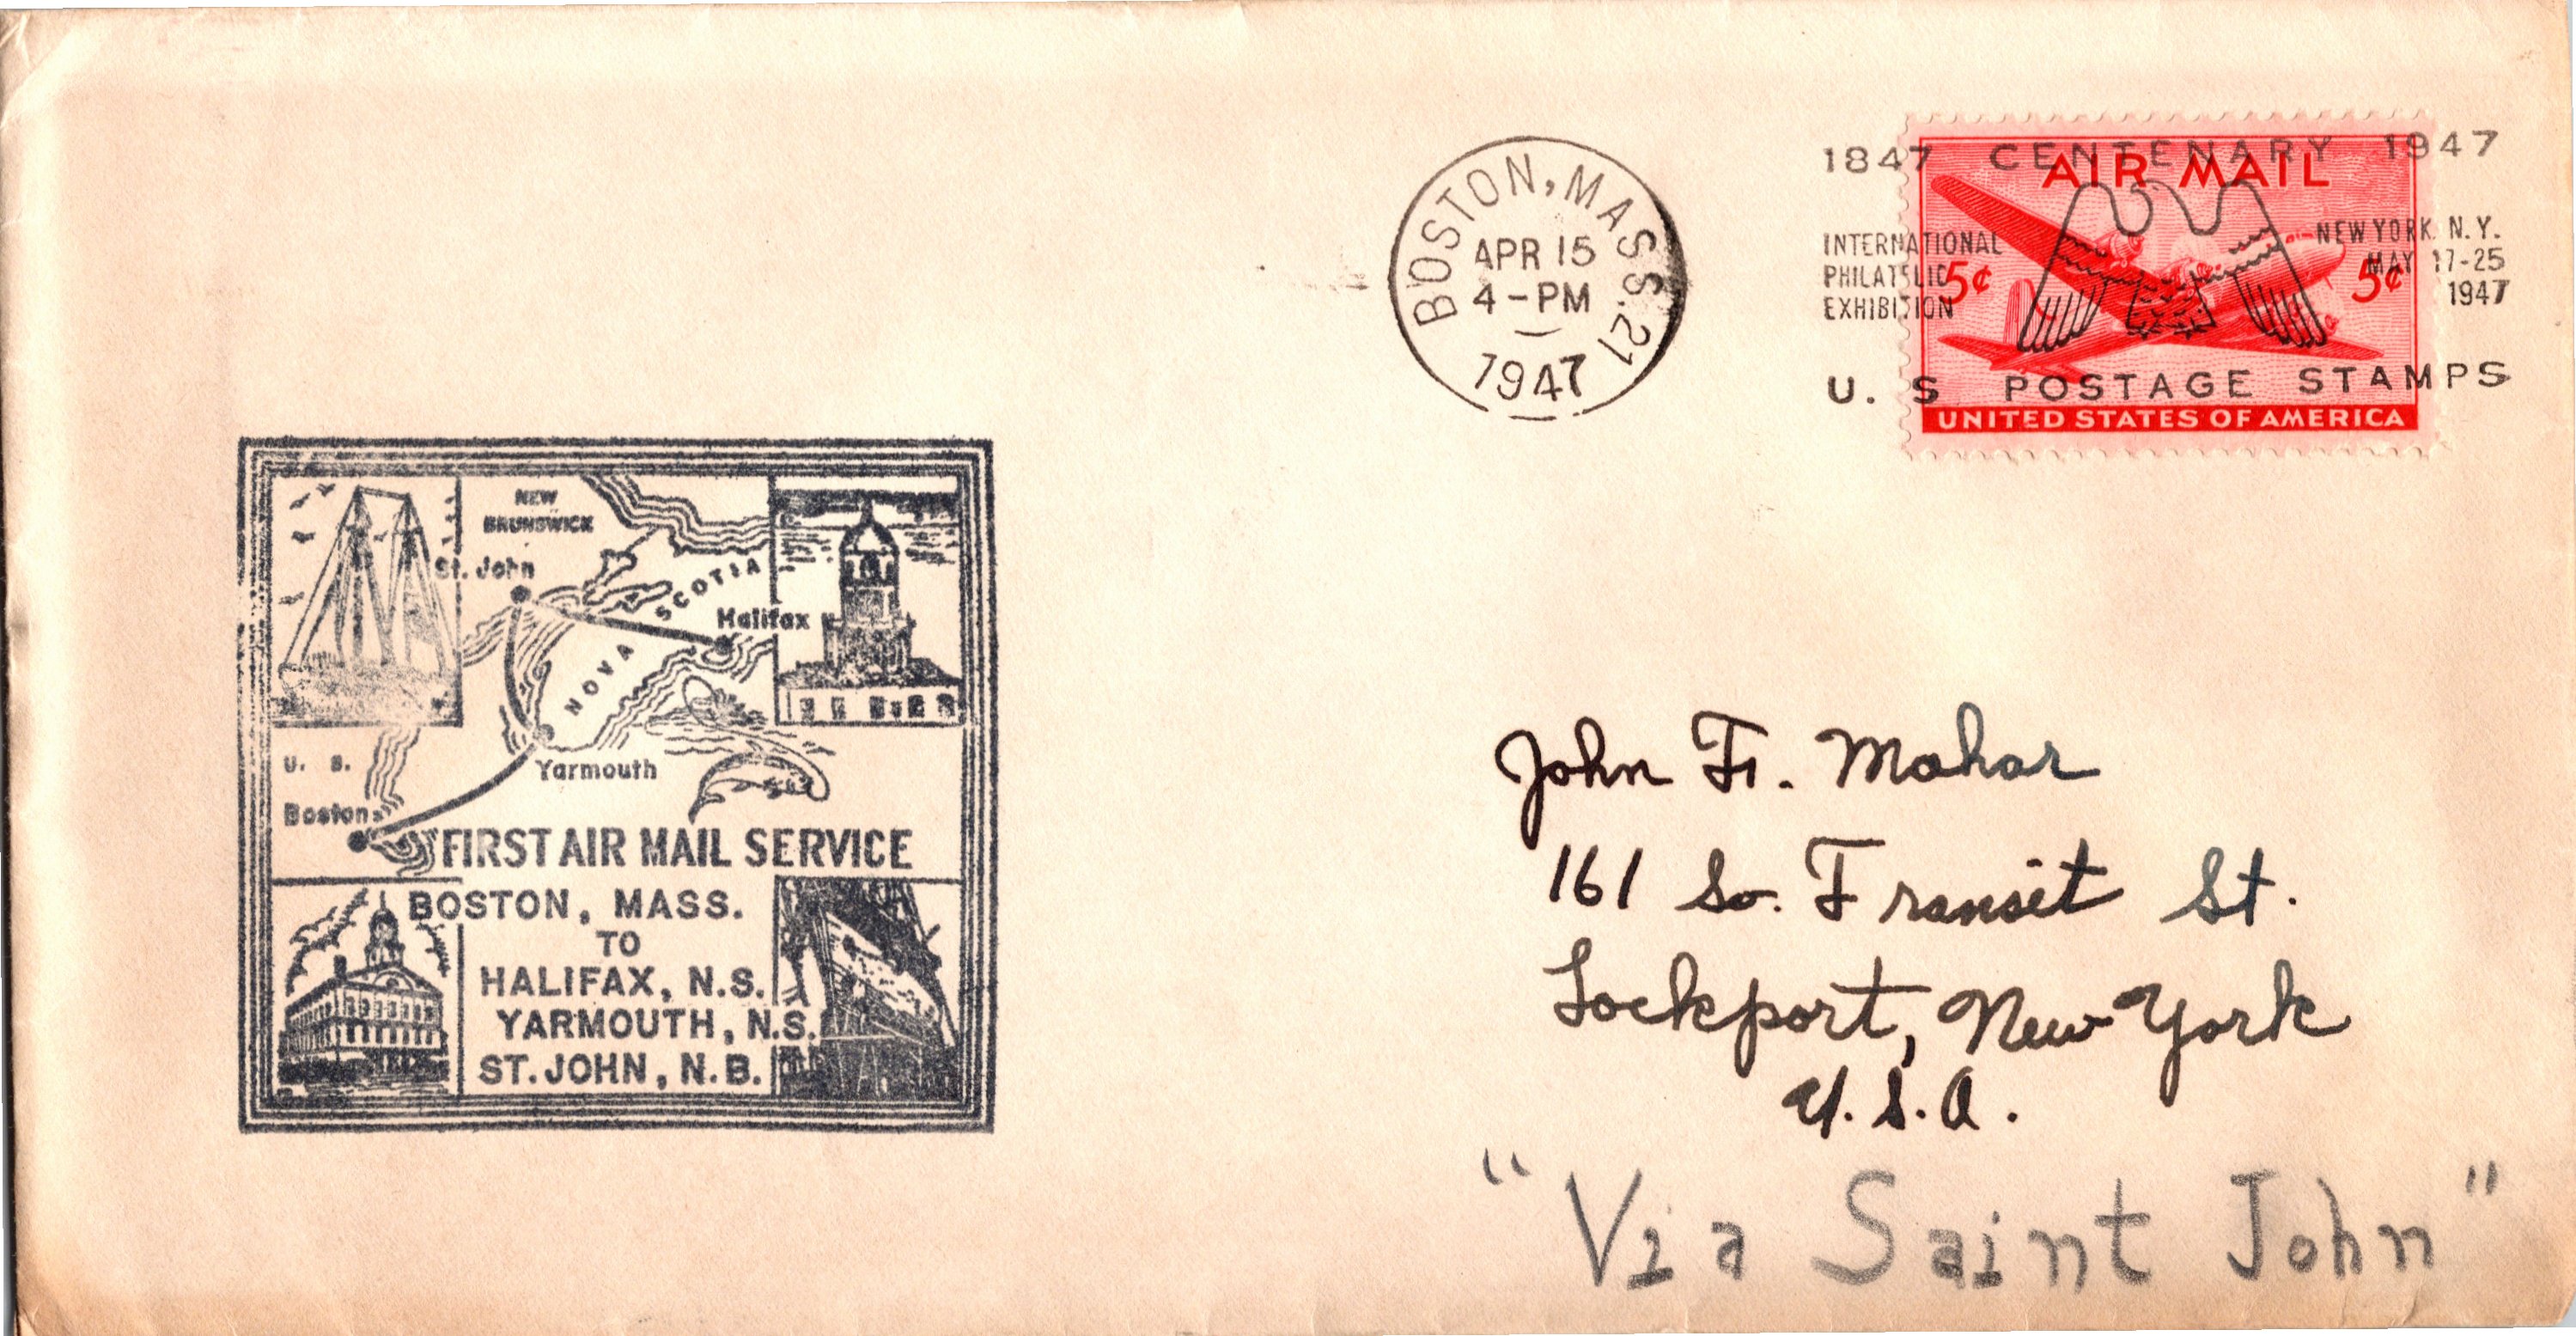 BOSTON, MASS. 21
APR 15
4-PM
1947
1847 CENTENARY 1947
INTERNATIONAL
PHILATELIC
EXHIBITION
NEW YORK, N.Y.
MAY 17-25
1947
U. S POSTAGE STAMPS
AIR MAIL
5¢ 5¢
UNITED STATES OF AMERICA
NEW
BRUNSWICK
St. John
NOVA SCOTIA
Halifax
U. S.
Yarmouth
Boston
FIRST AIR MAIL SERVICE
BOSTON, MASS.
TO
HALIFAX, N.S.
YARMOUTH, N.S.
ST. JOHN, N.B.
John Fr. Mahar
161 So. Transit St.
Lockport, New York
U.S.A.
"Via Saint John"